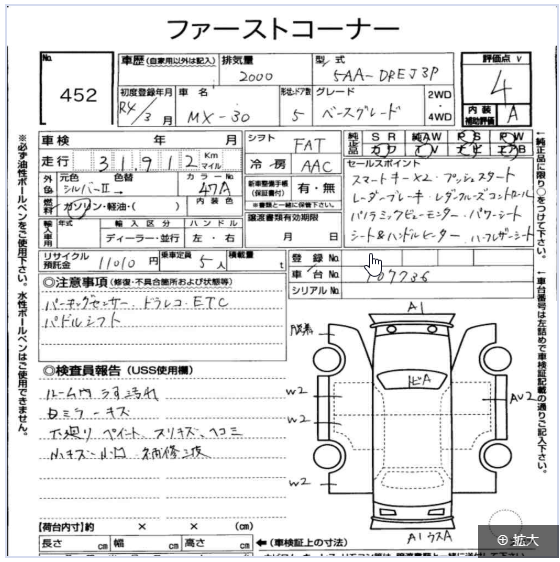 ファーストコーナー
No.
452
車歴 (自家用以外は記入)
排気量
2000
型式
5AA-DREJ3P
初度登録年月
R4/3月
車名
MX-30
形状ドア数
5
グレード
ベースグレード
2WD
4WD
評価点
4
内装
補助評価
A
車検 年 月
走行 31,912 Km
マイル
外色
元色 色替
シルバーII→
カラーNo.
47A
燃料
ガソリン・軽油・( )
内装色
輸入車用
年式
輸入区分
ディーラー・並行
ハンドル
左・右
シフト
FAT
冷房
AAC
新車整備手帳
(保証書付)
有・無
※書類と一緒に保管下さい。
譲渡書類有効期限
月 日
純正品
SR
純AW
PS
PW
カワ
TV
ナビ
エアB
セールスポイント
スマートキー×2・プッシュスタート
レーダーブレーキ・レーダクルーズコントロール
パノラミックビューモンター・パワーシート
シート&ハンドルヒーター・ハーフレザーシート
リサイクル
預託金
11010 円
乗車定員
5人
積載量
t
登録No.
車台No.
107736
シリアルNo.
◎注意事項 (修復・不具合箇所および状態等)
パーキングセンサー ドラレコ・ETC
パドルシフト
◎検査員報告 (USS使用欄)
ルーム内 うす汚れ
Rミラーキズ
下廻り ペイント、スリキズ、ヘコミ
A1
W2
W2
W2
AU2
ビA
A1
【荷台内寸】約 × × (cm)
長さ cm
幅 cm
高さ cm
←(車検証上の寸法)
※必ず油性ボールペンをご使用下さい。水性ボールペンはご使用できません。
↑純正品に限り○をつけて下さい。
↑車台番号は左詰めで車検証記載の通りご記入下さい。
拡大